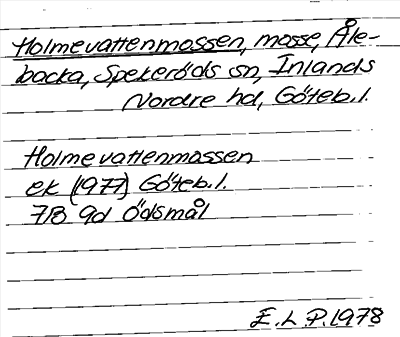 Holmevattenmossen, mosse, Åle-
backa, Spekeröds sn, Inlands
Nordre hd, Göteb.l.
Holmevattenmossen
ek (1977) Göteb.l.
7B 9d Ödsmål
E.L.P. 1978